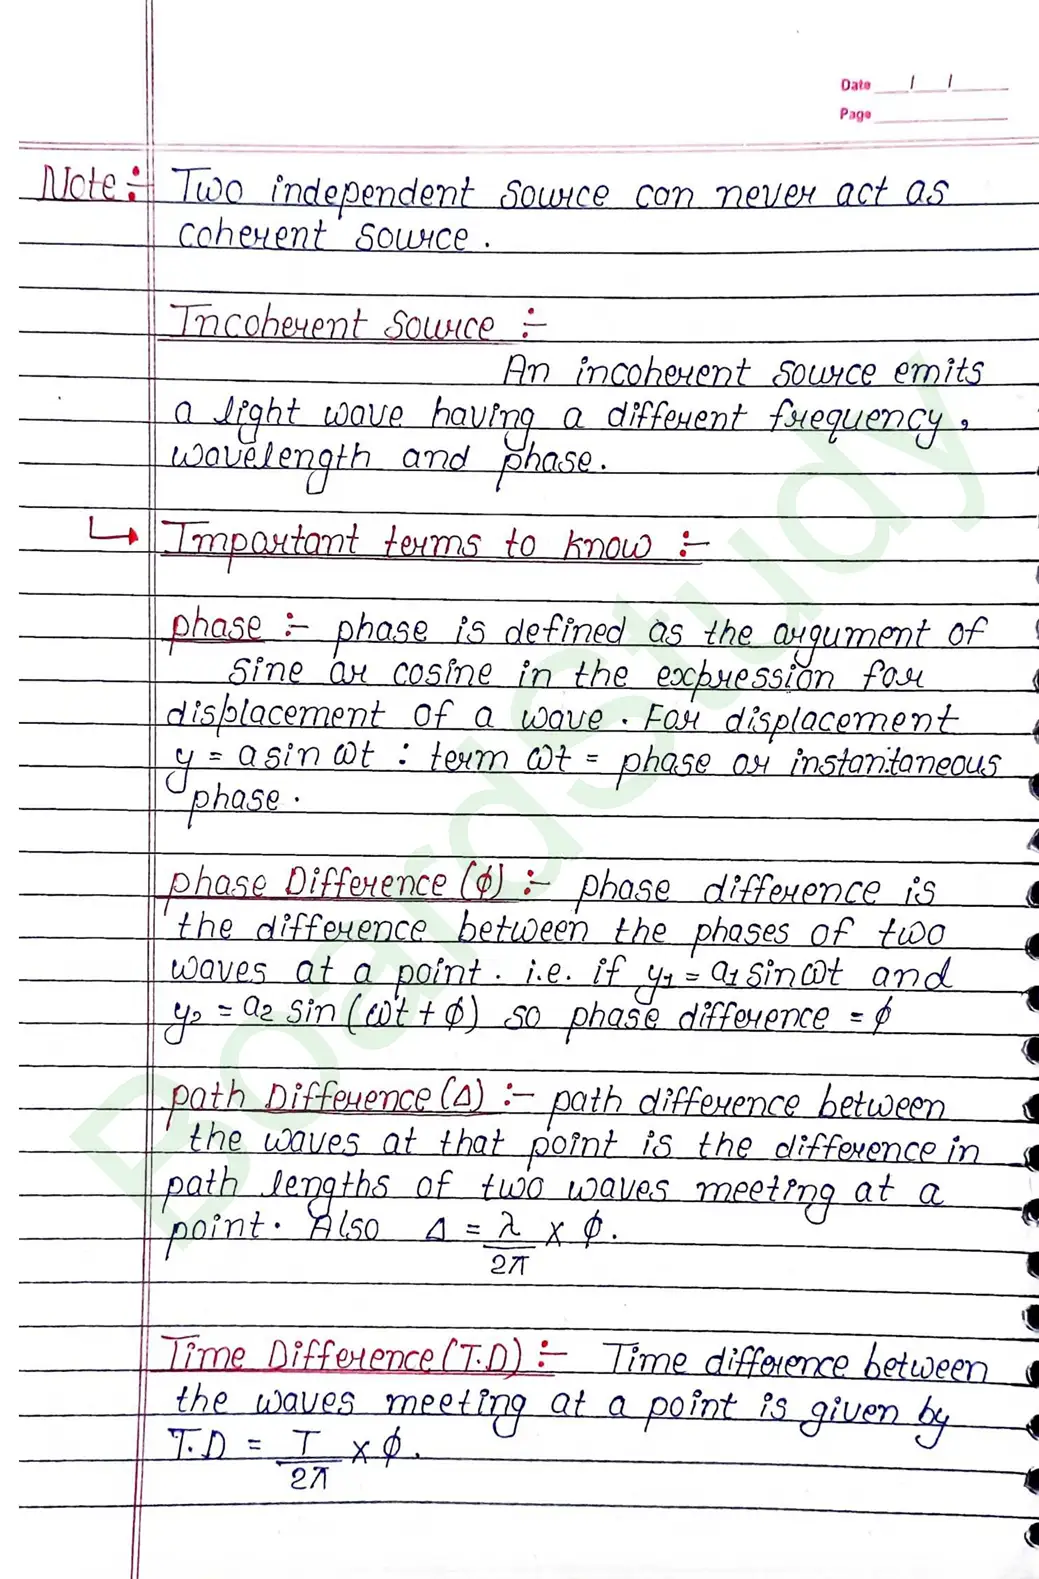 Date / /
Page
Note :- Two independent source can never act as
coherent source.
Incoherent Source :-
An incoherent source emits
a light wave having a different frequency,
wavelength and phase.
↳ Important terms to know :-
phase :- phase is defined as the argument of
sine or cosine in the expression for
displacement of a wave. For displacement
y = a sin ωt : term ωt = phase or instantaneous
phase.
phase Difference (φ) :- phase difference is
the difference between the phases of two
waves at a point. i.e. if y₁ = a₁ sin ωt and
y₂ = a₂ sin (ωt + φ) so phase difference = φ
path Difference (Δ) :- path difference between
the waves at that point is the difference in
path lengths of two waves meeting at a
point. Also Δ = λ/2π × φ.
Time Difference (T.D) :- Time difference between
the waves meeting at a point is given by
T.D = T/2π × φ.
BoardStudy